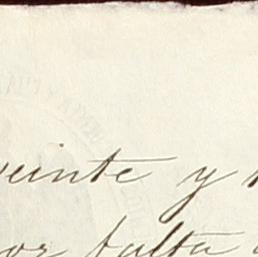 veinte y
por falta